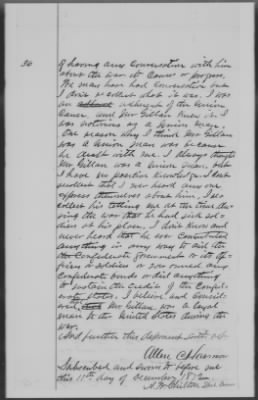 36
of having any conversation with him
about the war its cause or progress.
We may have had conversation but
I don't recollect what it was. I was
an adherent of the Union
Cause and Mr Gillian knew it. I
was notorious as a Union man.
One reason why I think Mr Gillian
was a Union man was because
he dealt with me. I always thought
Mr Gillian was a Union man, but
I have no positive knowledge. I don't
recollect that I ever heard any one
express themselves about him. I re-
collect his telling me at the time du-
ring the war that he had sick sol-
diers at his place. I don't know and
never heard that he ever contributed
anything in any way to aid the
Confederate Government or its of-
ficers or soldiers or ever owned any
Confederate bonds or did anything
to sustain the credit of the Confed-
erate states. I believe and consid-
ered Mr Gillian was a loyal
man to the United States during the
war.
And further this deponent saith not
Allen
Subscribed and sworn to before me
this 11th day of December 187